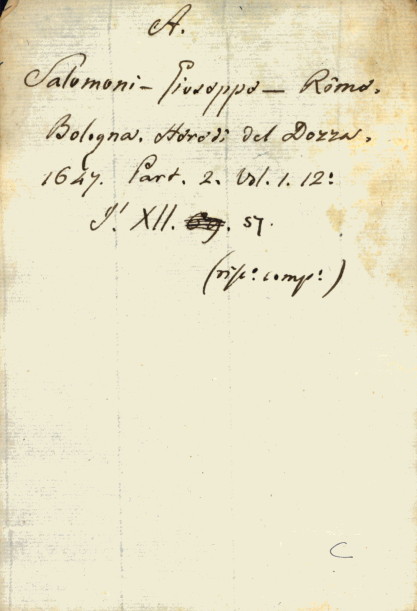 A.
Salomoni - Giuseppe - Rime.
Bologna. Heredi del Dozza.
1647. Part. 2. Vol. 1. 12:
J! XII. 57.
(risc: comp:)
C